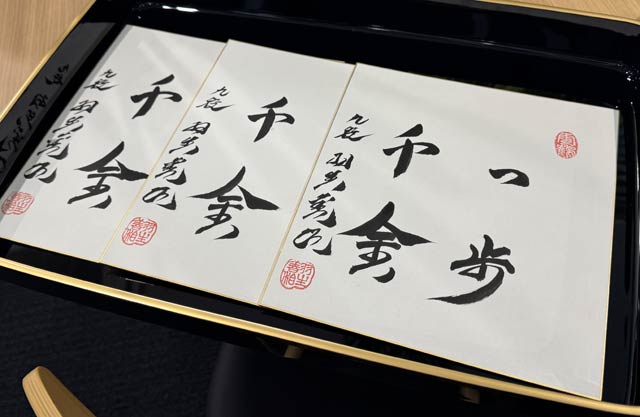 一歩
千金
九段 羽生善治
千金
九段 羽生善治
千金
九段 羽生善治